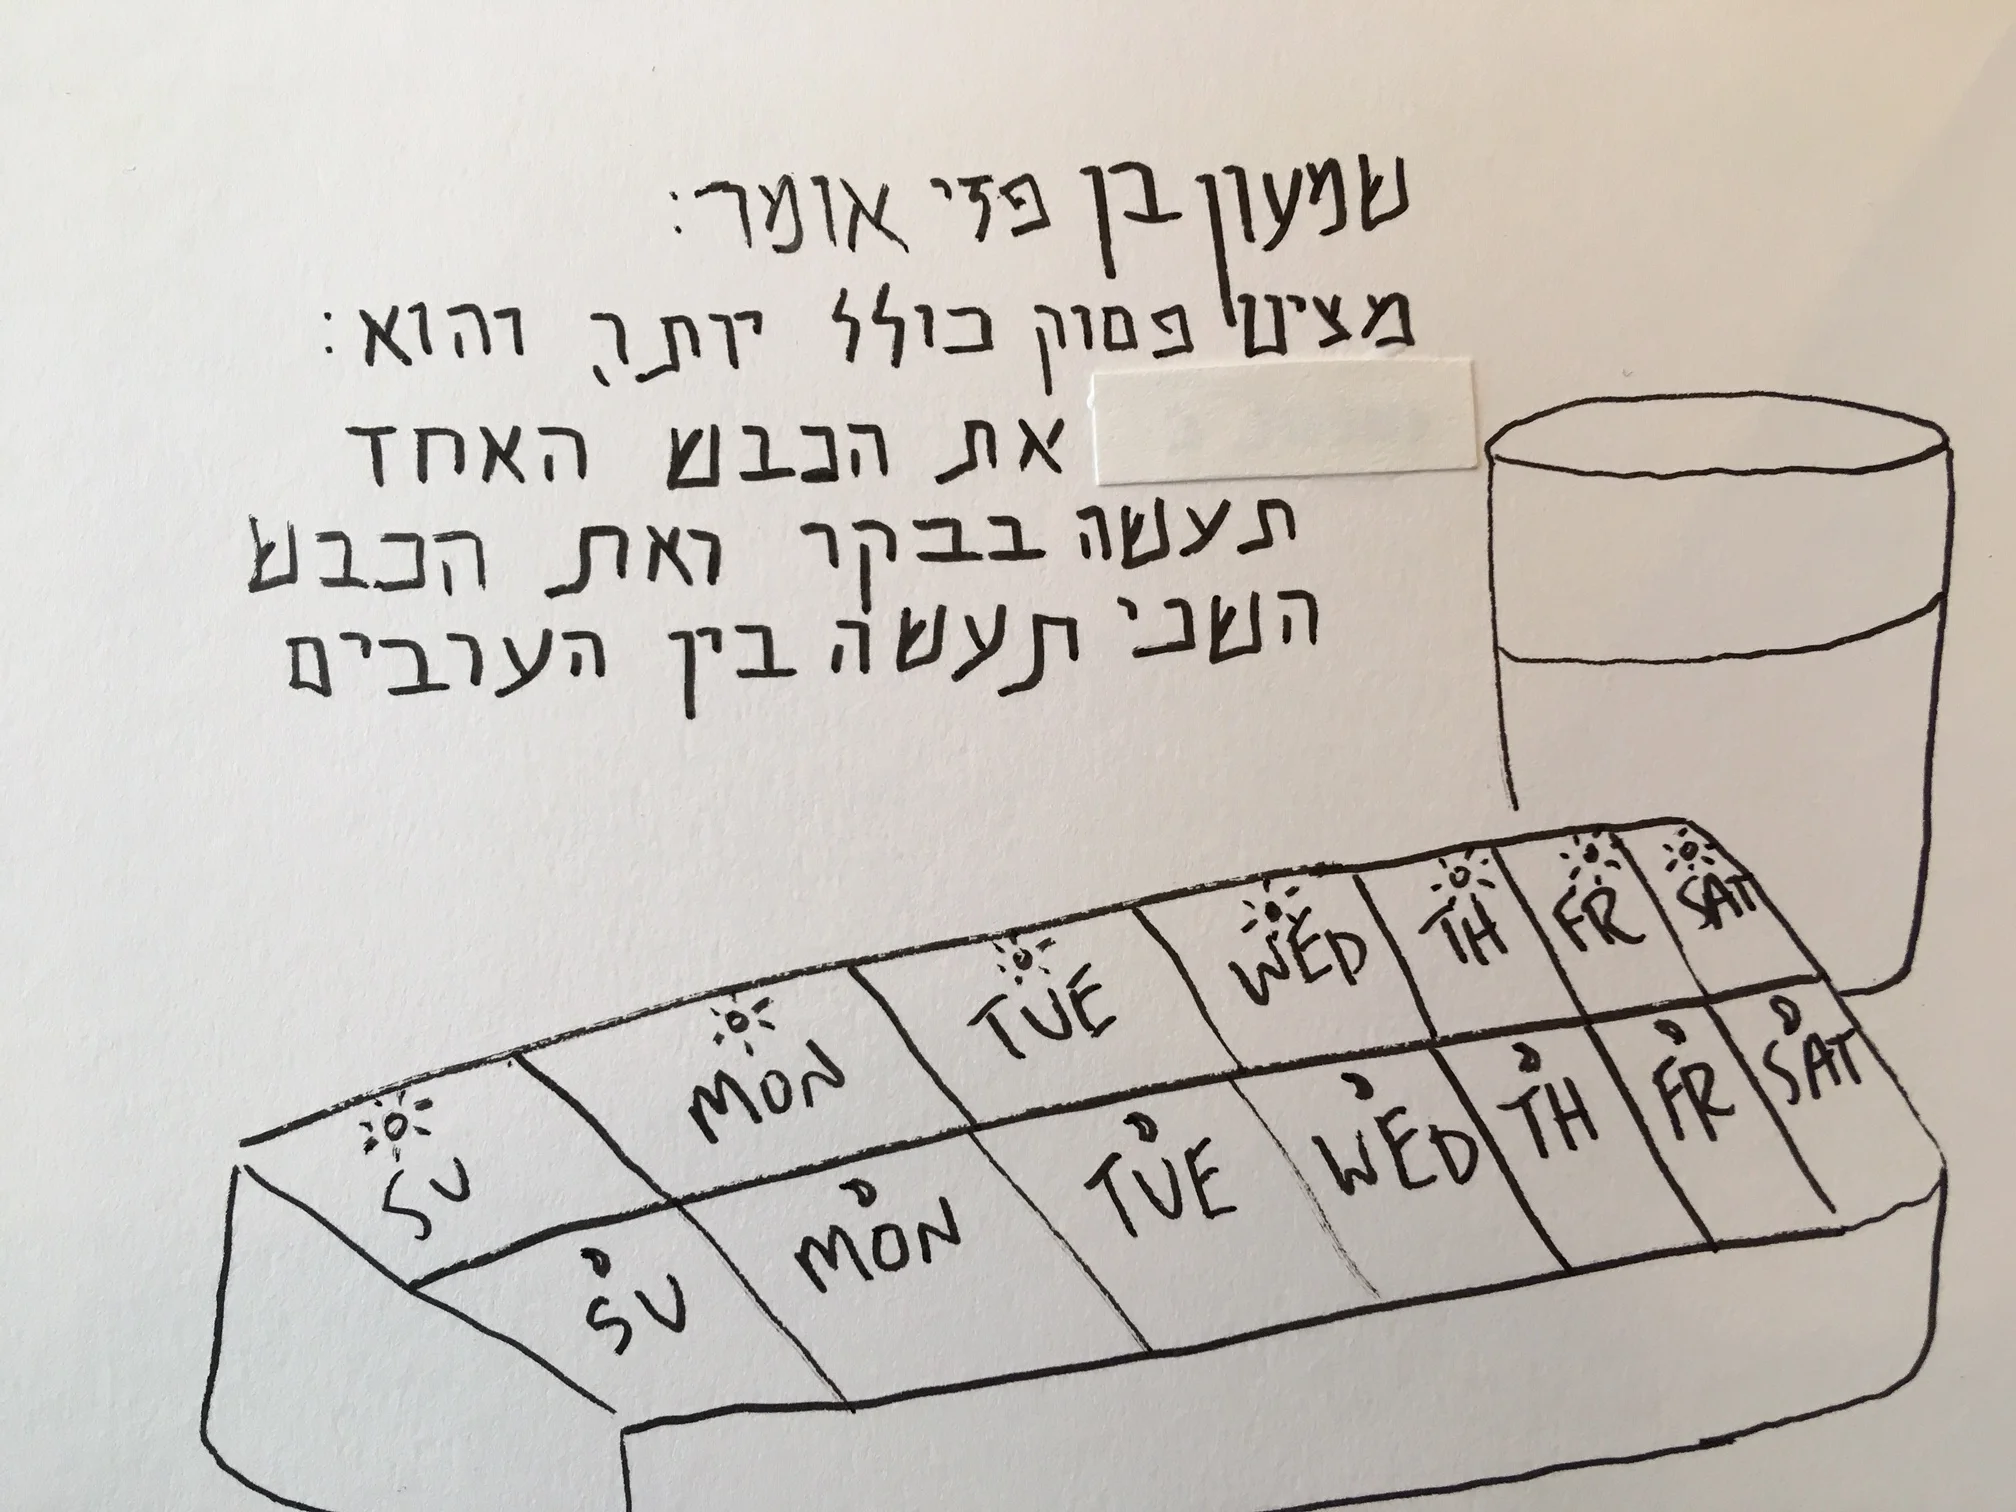 שמעון בן פזי אומר:
מצינו פסוק כולל יותר, והוא:
את הכבש האחד
תעשה בבקר ואת הכבש
השני תעשה בין הערבים
SU MON TUE WED TH FR SAT
SU MON TUE WED TH FR SAT